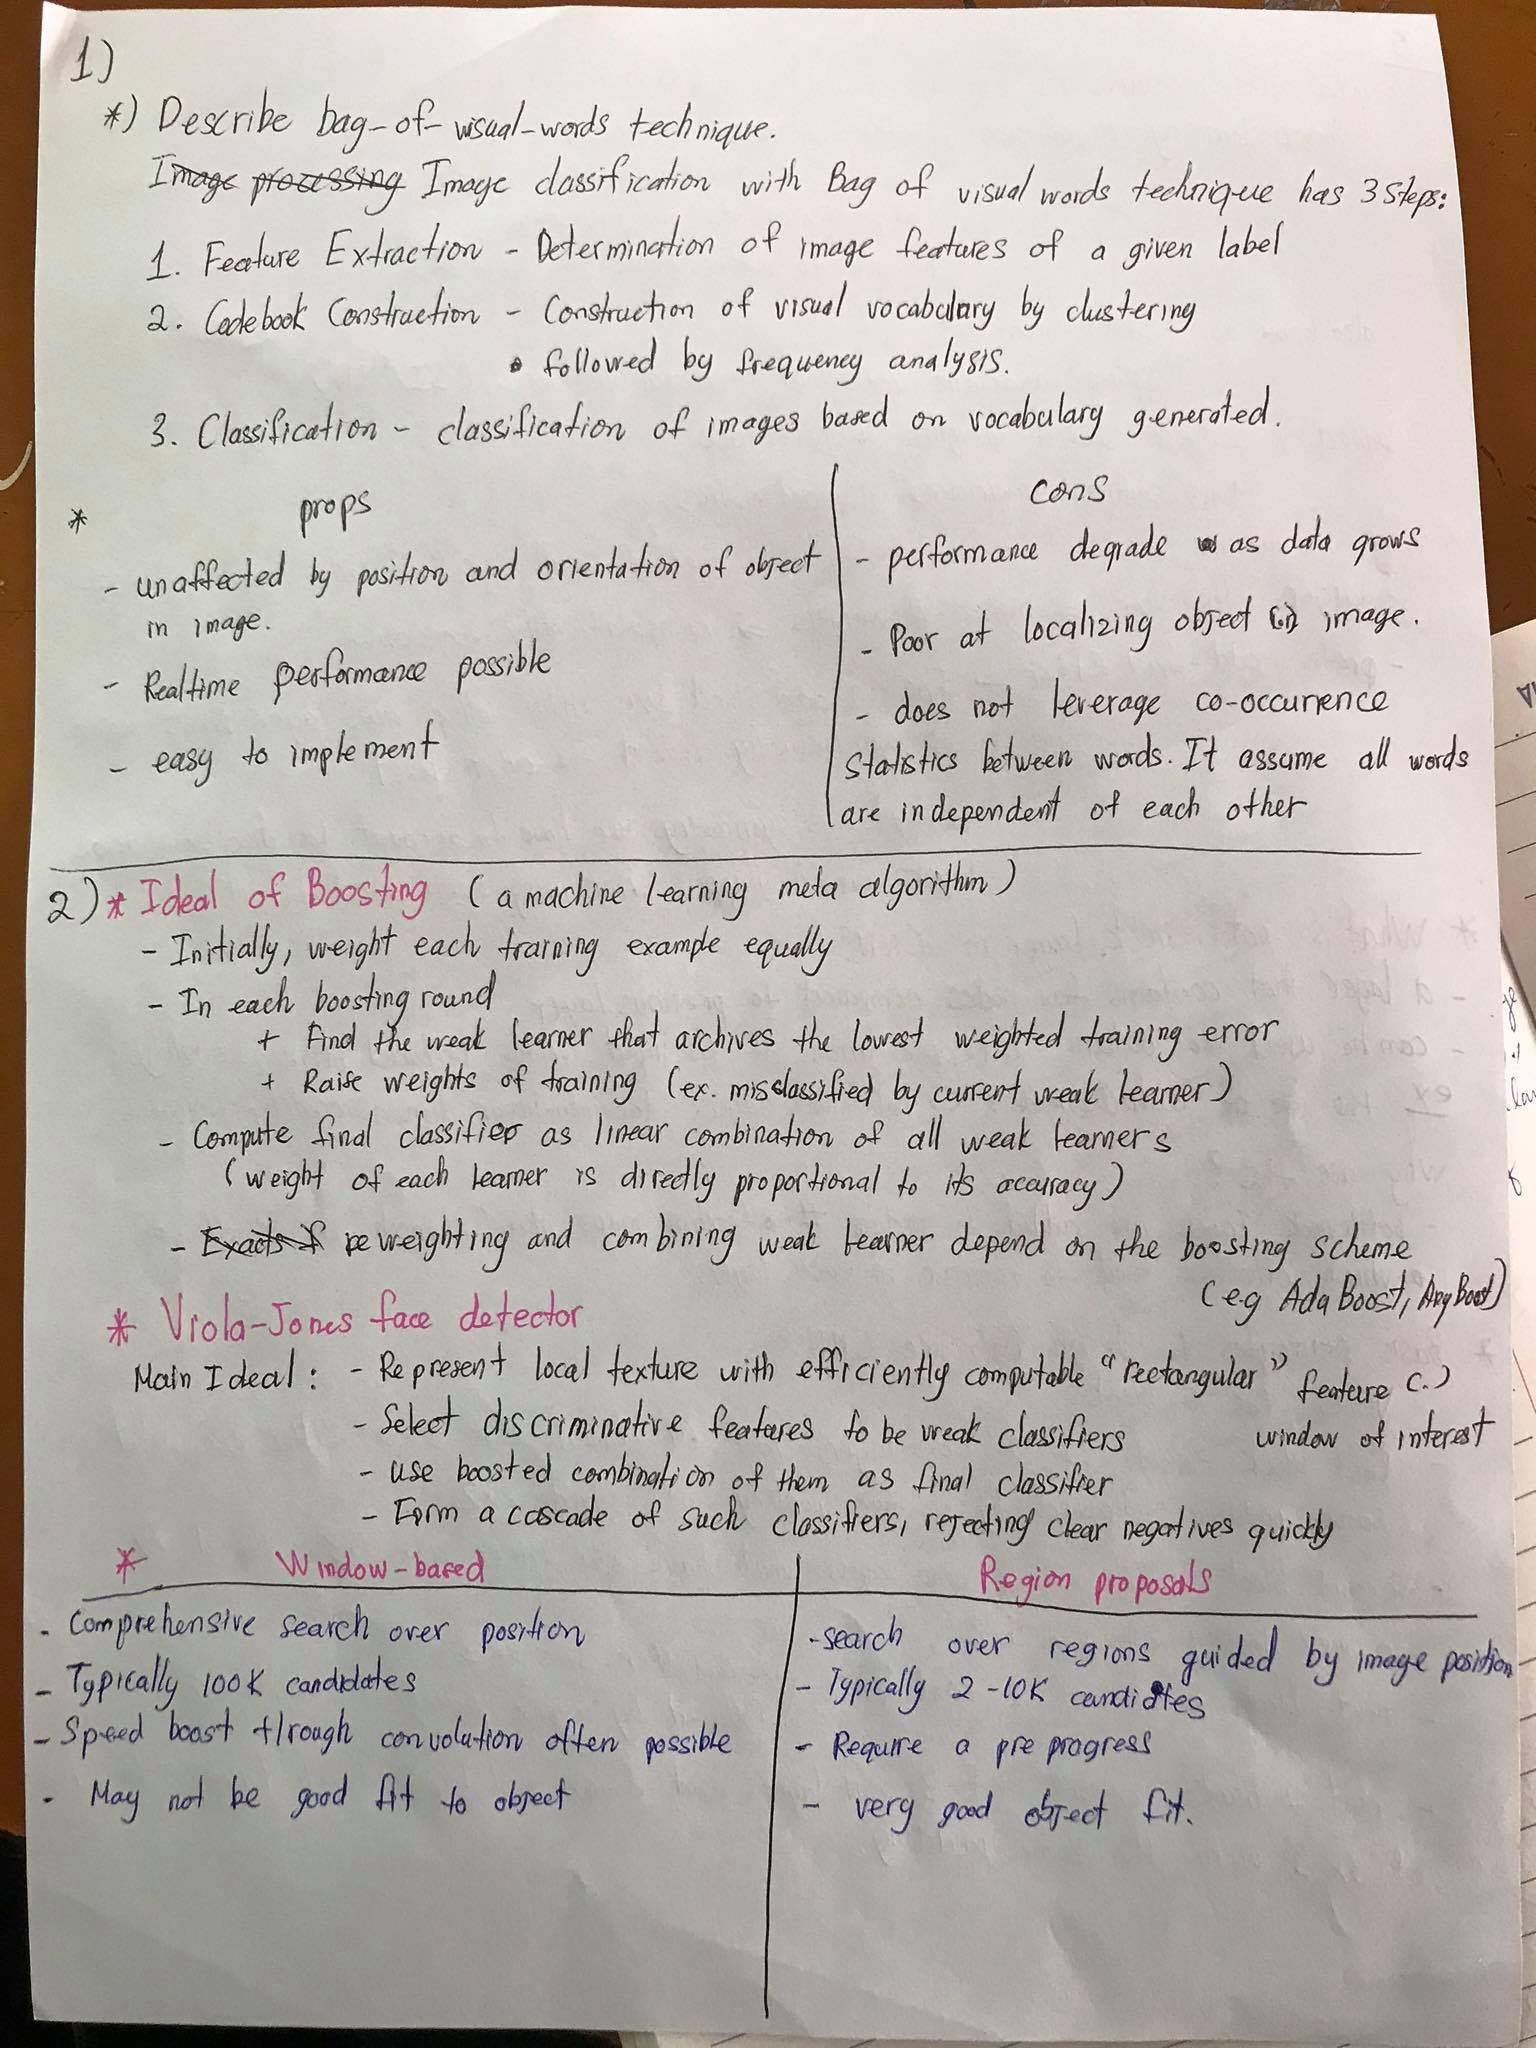 1)
*) Describe bag-of-visual-words technique.
Image processing Image classification with Bag of visual words technique has 3 Steps:
1. Feature Extraction - Determination of image features of a given label
2. Codebook Construction - Construction of visual vocabulary by clustering
followed by frequency analysis.
3. Classification - classification of images based on vocabulary generated.
* props
- unaffected by position and orientation of object
in image.
- Realtime performance possible
- easy to implement
cons
- performance degrade as data grows
- Poor at localizing object in image.
- does not leverage co-occurrence
Statistics between words. It assume all words
are independent of each other
2) * Ideal of Boosting (a machine learning meta algorithm)
- Initially, weight each training example equally
- In each boosting round
+ Find the weak learner that archives the lowest weighted training error
+ Raise weights of training (ex. misclassified by current weak learner)
- Compute final classifier as linear combination of all weak learners
(weight of each learner is directly proportional to its accuracy)
- reweighting and combining weak learner depend on the boosting scheme
(e.g AdaBoost, AnyBoost)
* Viola-Jones face detector
Main Ideal: - Represent local texture with efficiently computable "rectangular" feature
window of interest
- Select discriminative features to be weak classifiers
- use boosted combination of them as final classifier
- Form a cascade of such classifiers, rejecting clear negatives quickly
* Window-based
- Comprehensive search over position
- Typically 100K candidates
- Speed boost through convolution often possible
- May not be good fit to object
Region proposals
- search over regions guided by image position
- Typically 2-10K candidates
- Require a pre progress
- very good object fit.